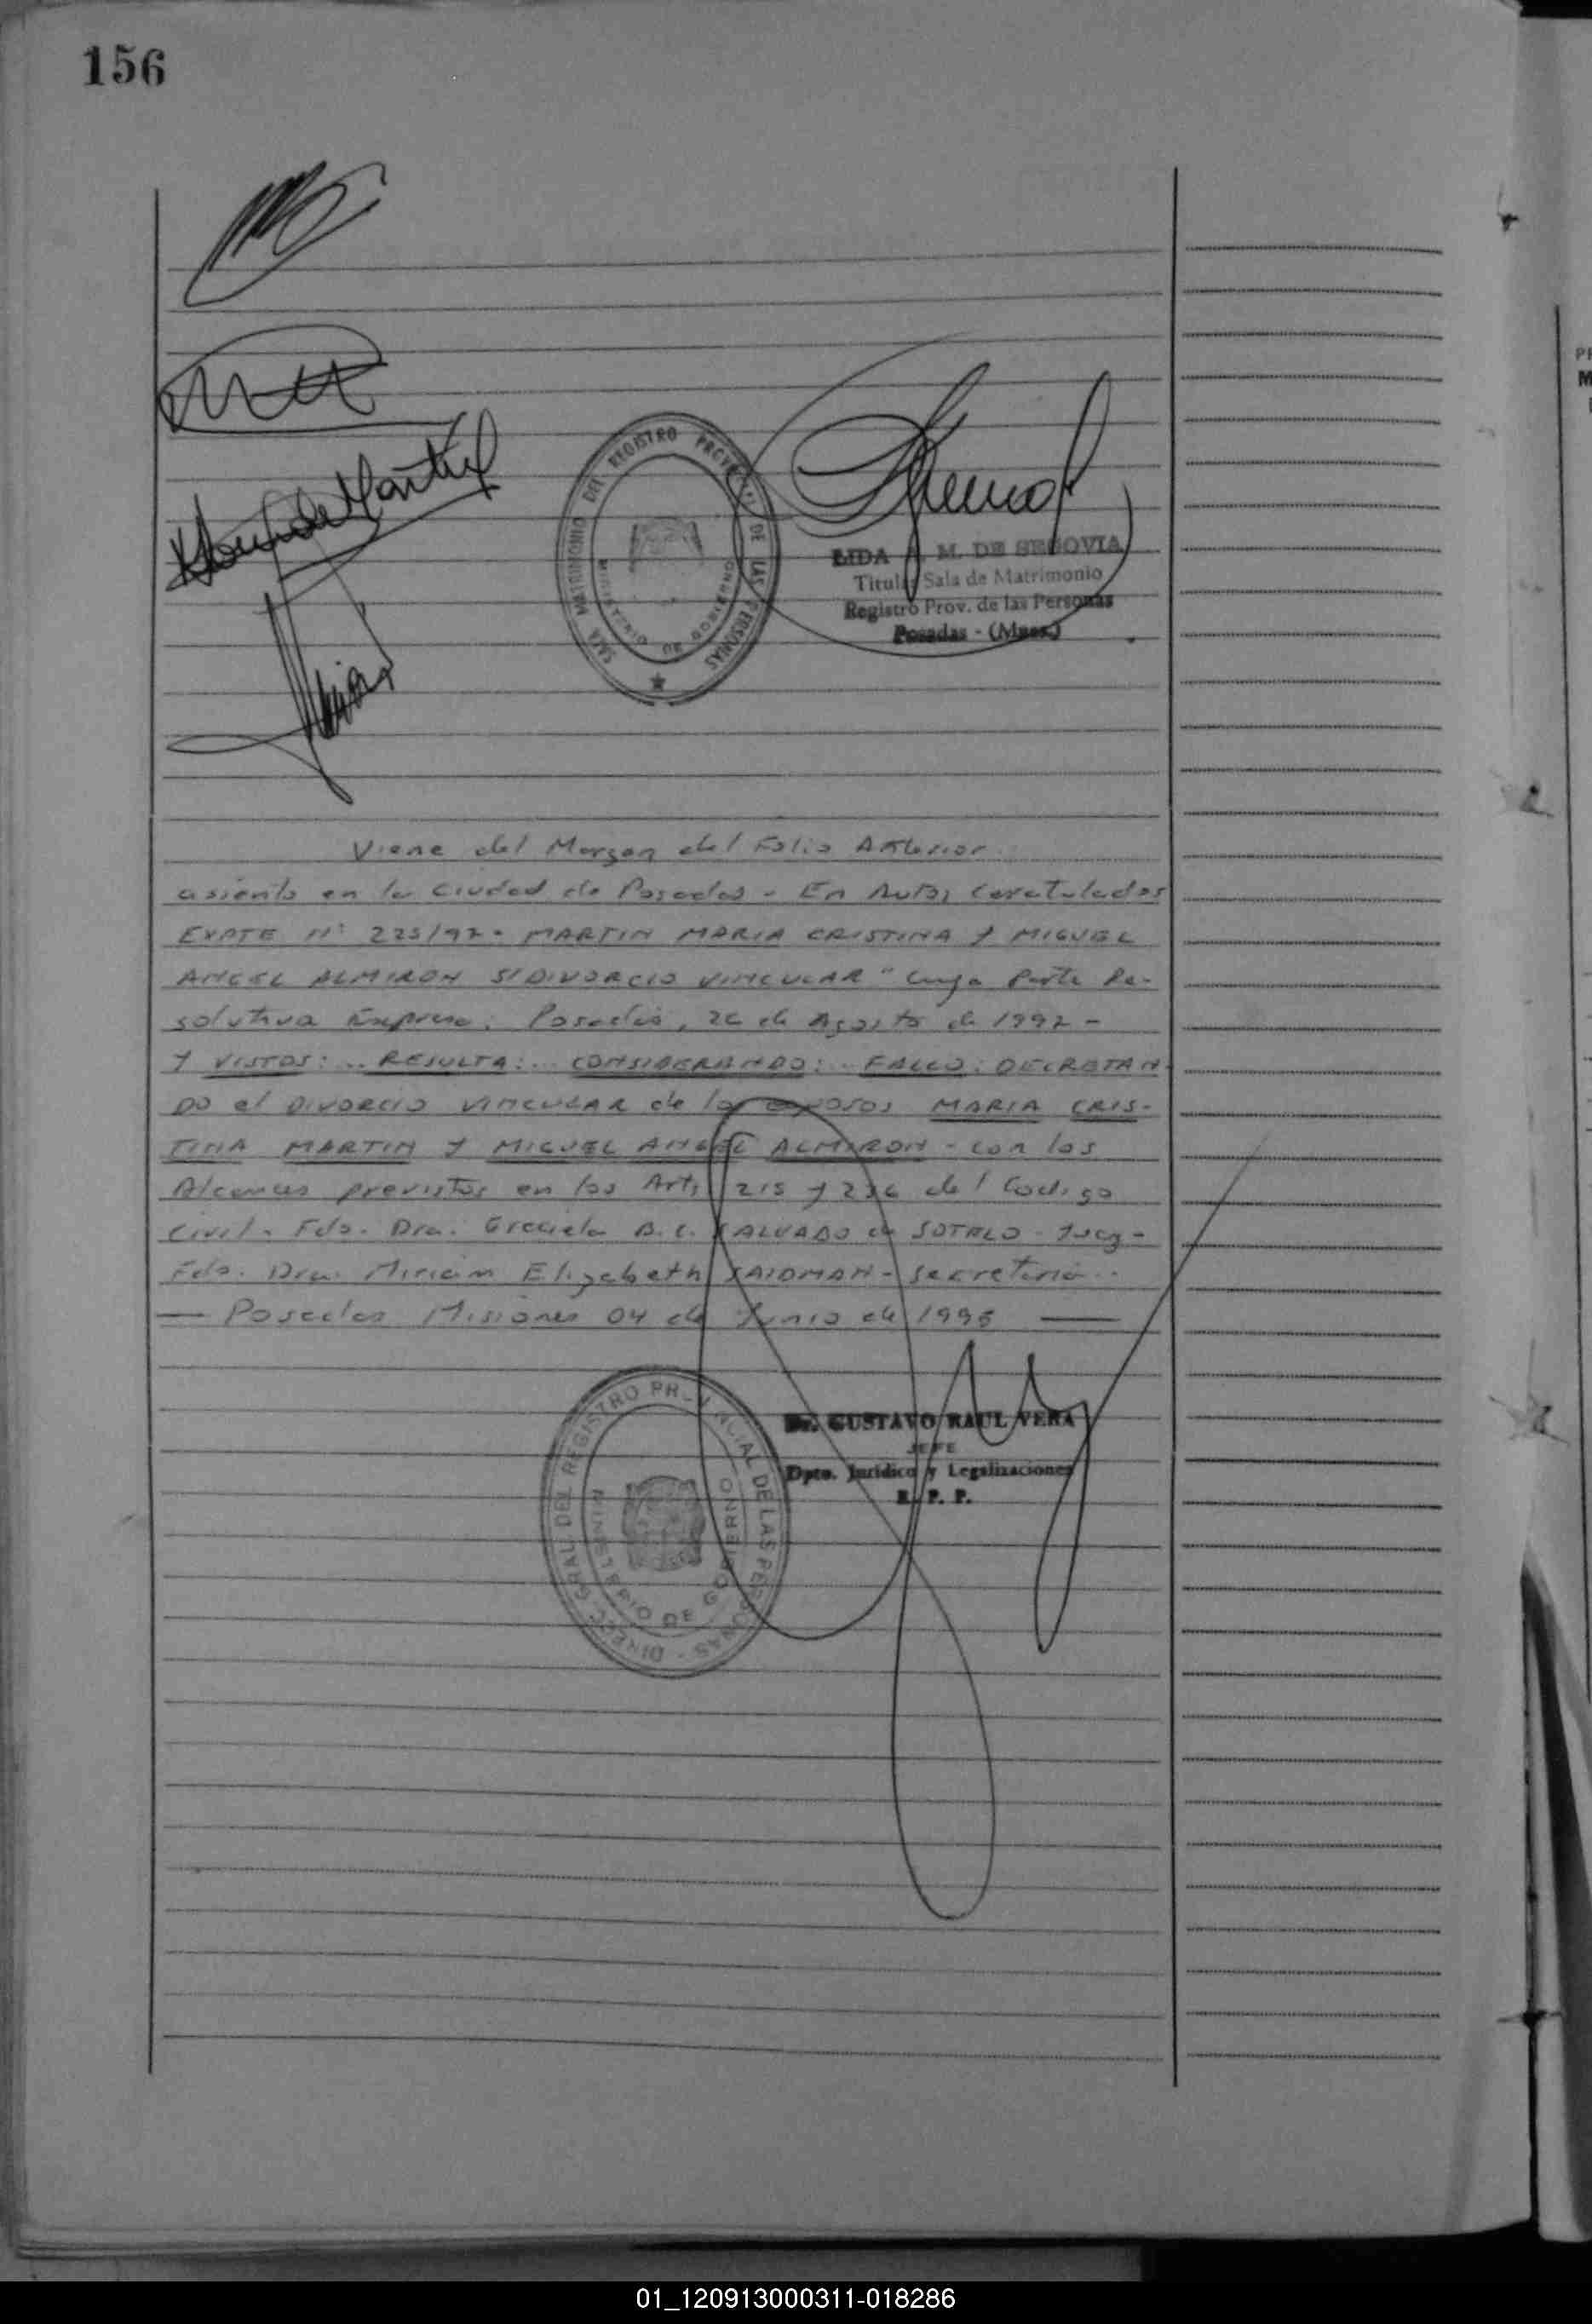 156
SALA MATRIMONIO DEL REGISTRO DE LAS PERSONAS
MINISTERIO DE GOBIERNO
LIDA M. DE SEGOVIA
Titular Sala de Matrimonio
Registro Prov. de las Personas
Posadas - (Mnes.)
Viene del Margen del Folio Anterior
asiento en la Ciudad de Posadas - En Autos Caratulados
EXPTE Nº MARTIN MARIA CRISTINA Y MIGUEL
ANGEL ALMIRON S/DIVORCIO VINCULAR" Cuya Parte Re-
solutiva Expresa: Posadas, 26 de Agosto de 1992 -
Y VISTOS: .. RESULTA: .. CONSIDERANDO: .. FALLO: DECRETAN-
DO el DIVORCIO VINCULAR de los esposos MARIA CRIS-
TINA MARTIN Y MIGUEL ANGEL ALMIRON - con los
Alcances previstos en los Arts 215 y 236 del Codigo
Civil - Fdo. Dra. Graciela B. C. de SOTELO - Juez -
Fdo. Dra. Miriam Elizabeth SAIDMAN - Secretaria ..
— Posadas Misiones 04 de Junio de 1996 —
DIRECC. GRAL. DEL REGISTRO PROVINCIAL DE LAS PERSONAS -
MINISTERIO DE GOBIERNO
Dr. GUSTAVO RAUL VERA
JEFE
Dpto. Jurídico y Legalizaciones
R. P. P.
01_120913000311-018286